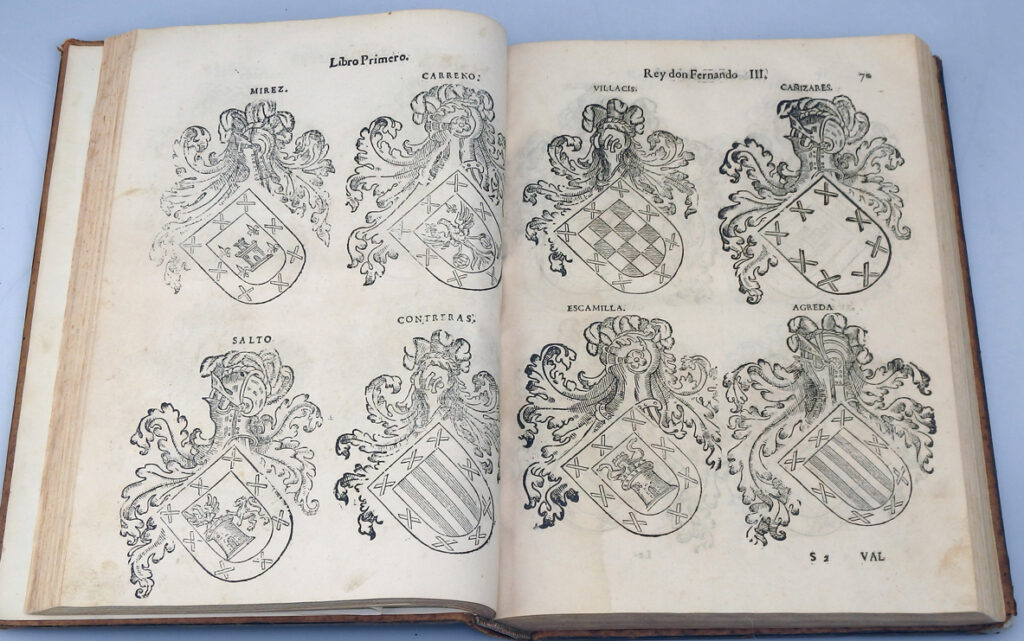 Libro Primero.
MIREZ.
CARRENO.
SALTO
CONTRERAS.
Rey don Fernando III.
70
VILLACIS.
CAÑIZARES.
ESCAMILLA.
AGREDA
S 2
VAL